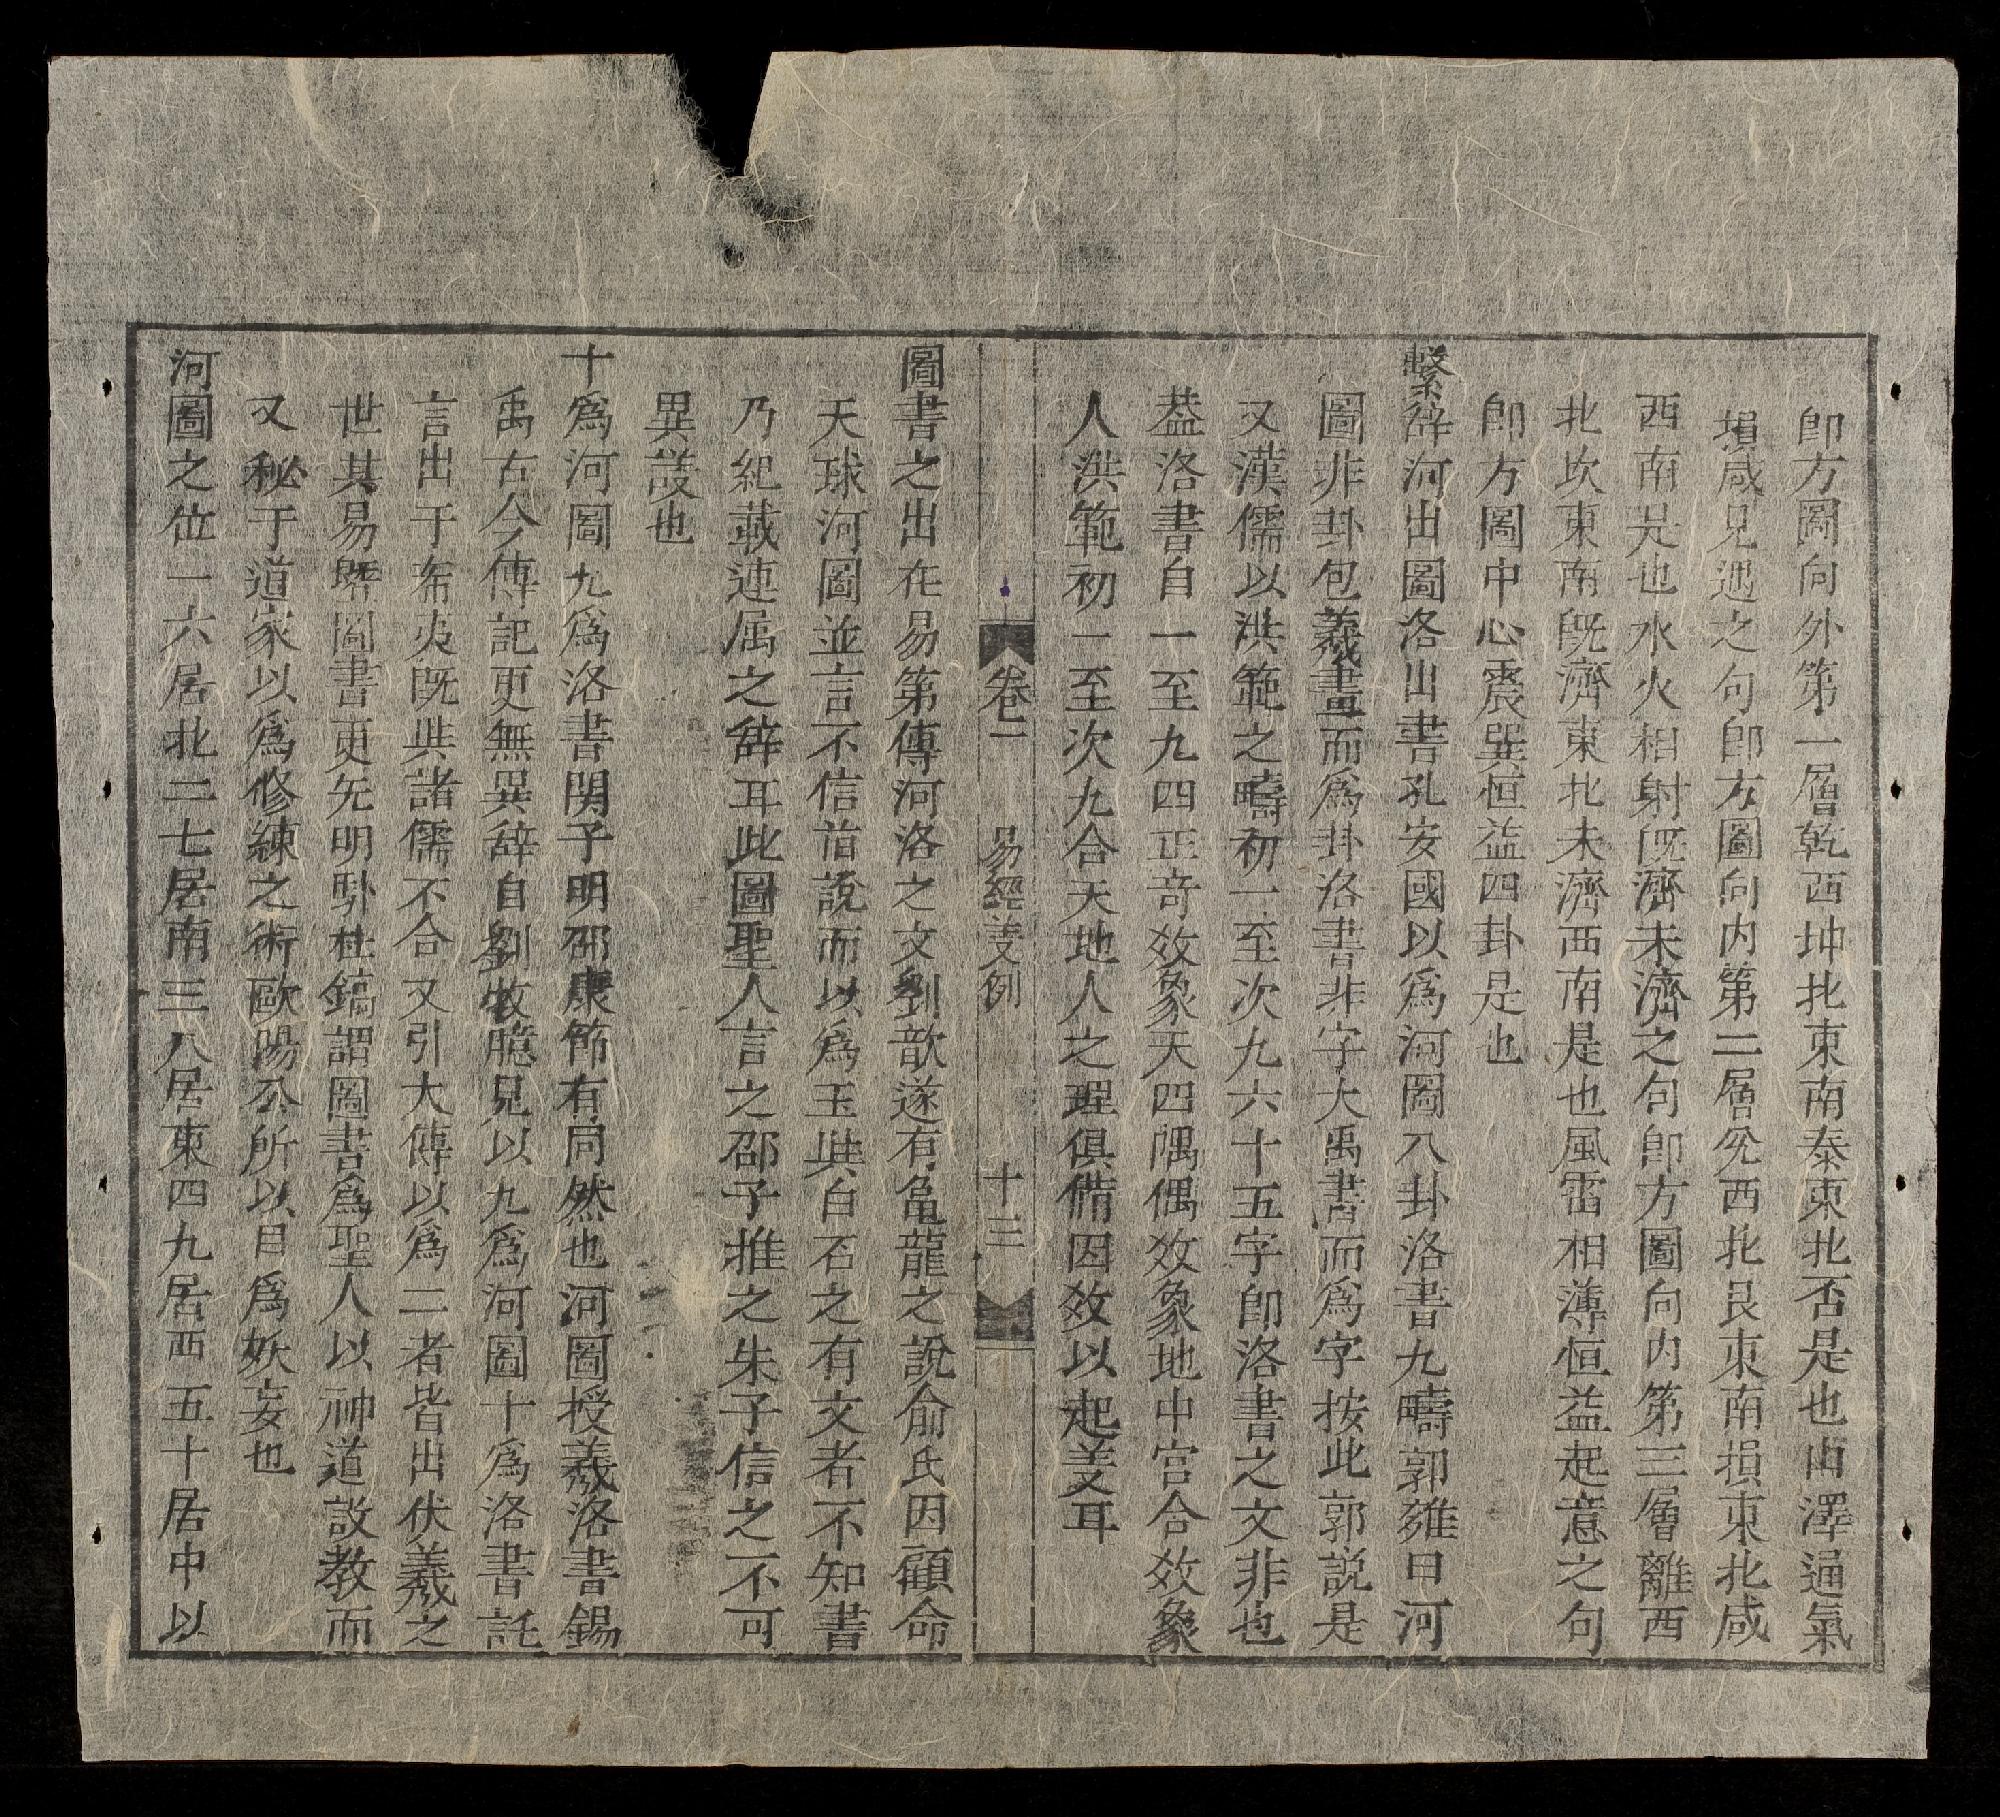 即方圖向外第一層乾西坤北東南泰東北否是也山澤通氣
損咸見遇之句即方圖向内第二層兊西北艮東南損東北咸
西南是也水火相射旣濟未濟之句即方圖向内第三層離西
北坎東南旣濟東北未濟西南是也風雷相薄恒益起意之句
即方圖中心震巽恒益四卦是也
繫辭河出圖洛出書孔安國以爲河圖八卦洛書九疇郭雍曰河
圖非卦包羲畫而爲卦洛書非字大禹書而爲字按此郭説是
又漢儒以洪範之疇初一至次九六十五字即洛書之文非也
葢洛書自一至九四正竒效象天四隅偶效象地中宫合效象
人洪範初一至次九合天地人之理俱備因效以起義耳
卷一 易經義例 十三
圖書之出在易第傳河洛之文劉歆遂有龜龍之說俞氏因顧命
天球河圖並言不信前說而以爲玉與白石之有文者不知書
乃紀載連属之辭耳此圖聖人言之邵子推之朱子信之不可
異議也
十爲河圖九爲洛書関子明邵康節有同然也河圖授羲洛書錫
禹古今傳記更無異辭自劉牧臆見以九爲河圖十爲洛書託
言出于希夷旣與諸儒不合又引大傳以爲二者皆出伏羲之
世其易置圖書更无明騐杜鎬謂圖書爲聖人以神道設教而
又秘于道家以爲修練之術歐陽公所以目爲妖妄也
河圖之位一六居北二七居南三八居東四九居西五十居中以